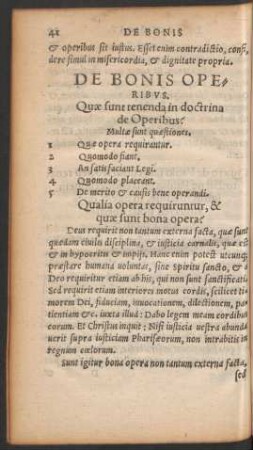 42 DE BONIS
& operibus sit iustus. Esset enim contradictio, confi,
dere simul in misericordia, & dignitate propria.
DE BONIS OPE-
RIBVS.
Quæ sunt tenenda in doctrina
de Operibus?
Multæ sunt quæstiones.
1 Quæ opera requirantur.
2 Quomodo fiant.
3 An satisfaciant Legi.
4 Quomodo placeant.
5 De merito & causis bene operandi.
Qualia opera requiruntur, &
quæ sunt bona opera?
Deus requirit non tantum externa facta, quæ sunt
quædam ciuilis disciplina, & iusticia carnalis, quæ est
& in hypocritis & impijs. Hanc enim potest utcunq;
præstare humana voluntas, sine Spiritu sancto, & à
Deo requiritur etiam ab his, qui non sunt sanctificati.
Sed requirit etiam interiores motus cordis, scilicet ti
morem Dei, fiduciam, inuocationem, dilectionem, pa
tientiam &c. iuxta illud: Dabo legem meam cordibus
eorum. Et Christus inquit: Nisi iusticia uestra abunda
uerit supra iusticiam Pharisæorum, non intrabitis in
regnum cœlorum.
Sunt igitur bona opera non tantum externa facta,
sed